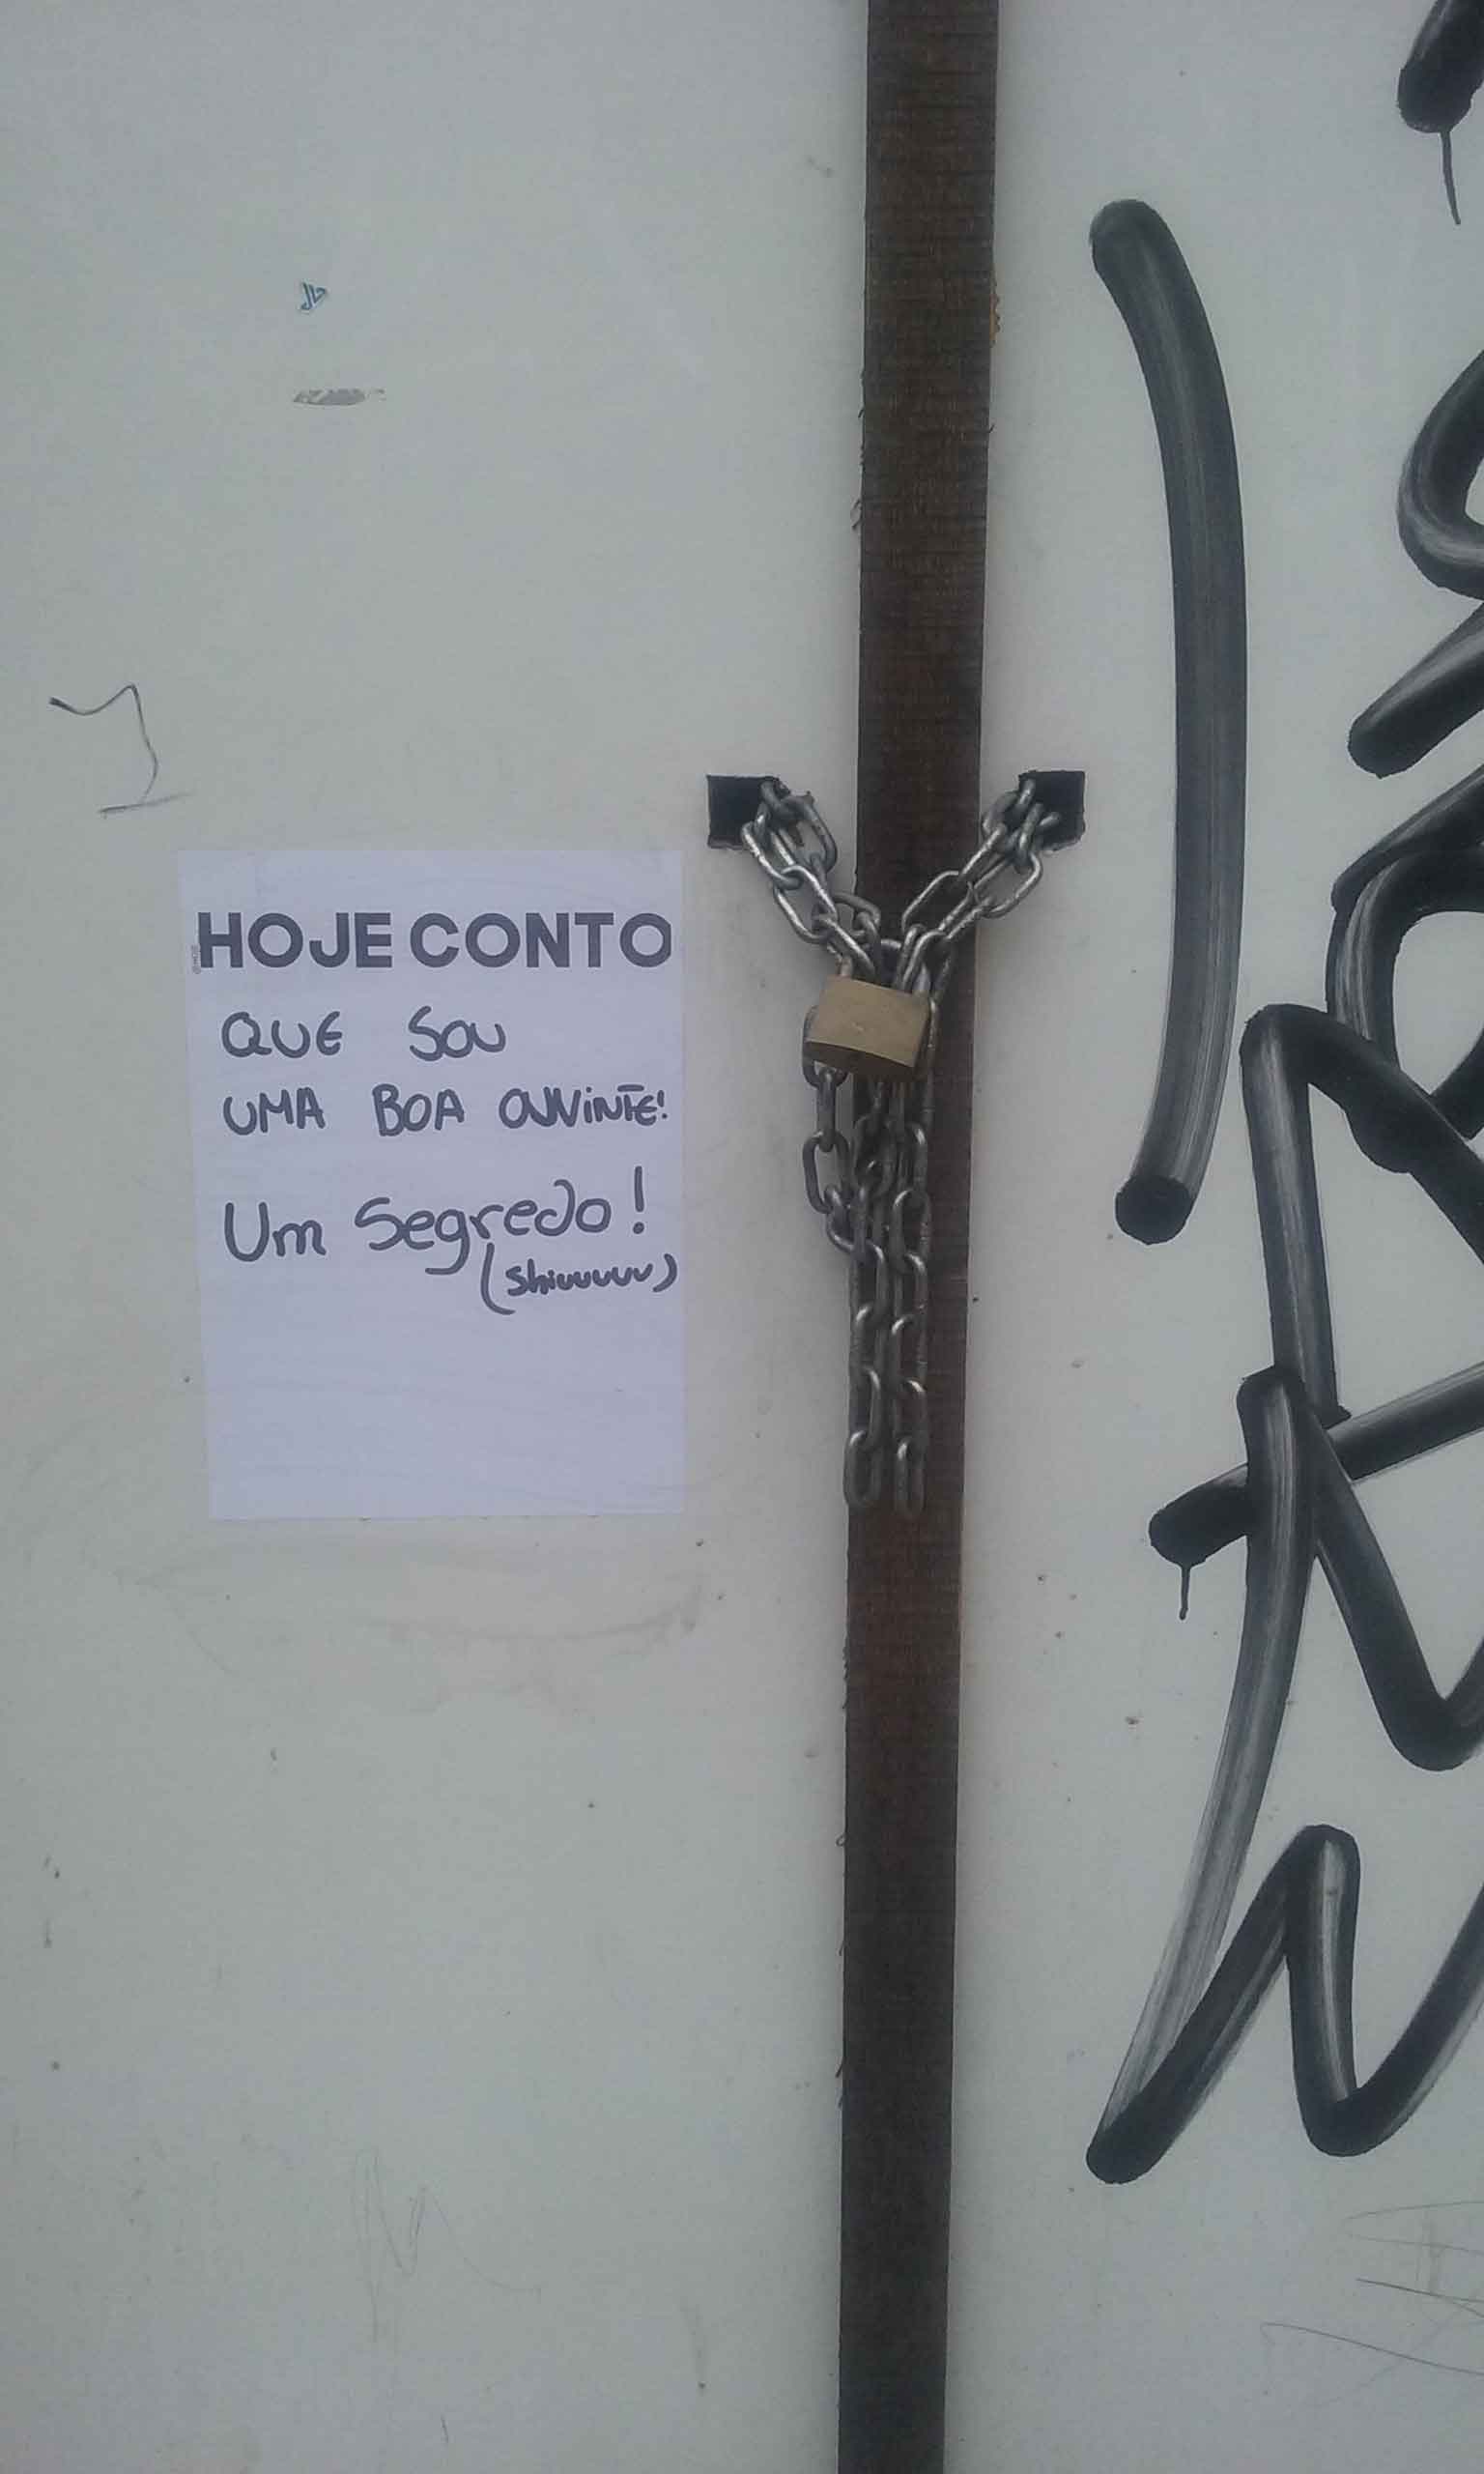 HOJE CONTO
QUE SOU
UMA BOA OUVINTE!
Um Segredo!
(Shiuuuuu)